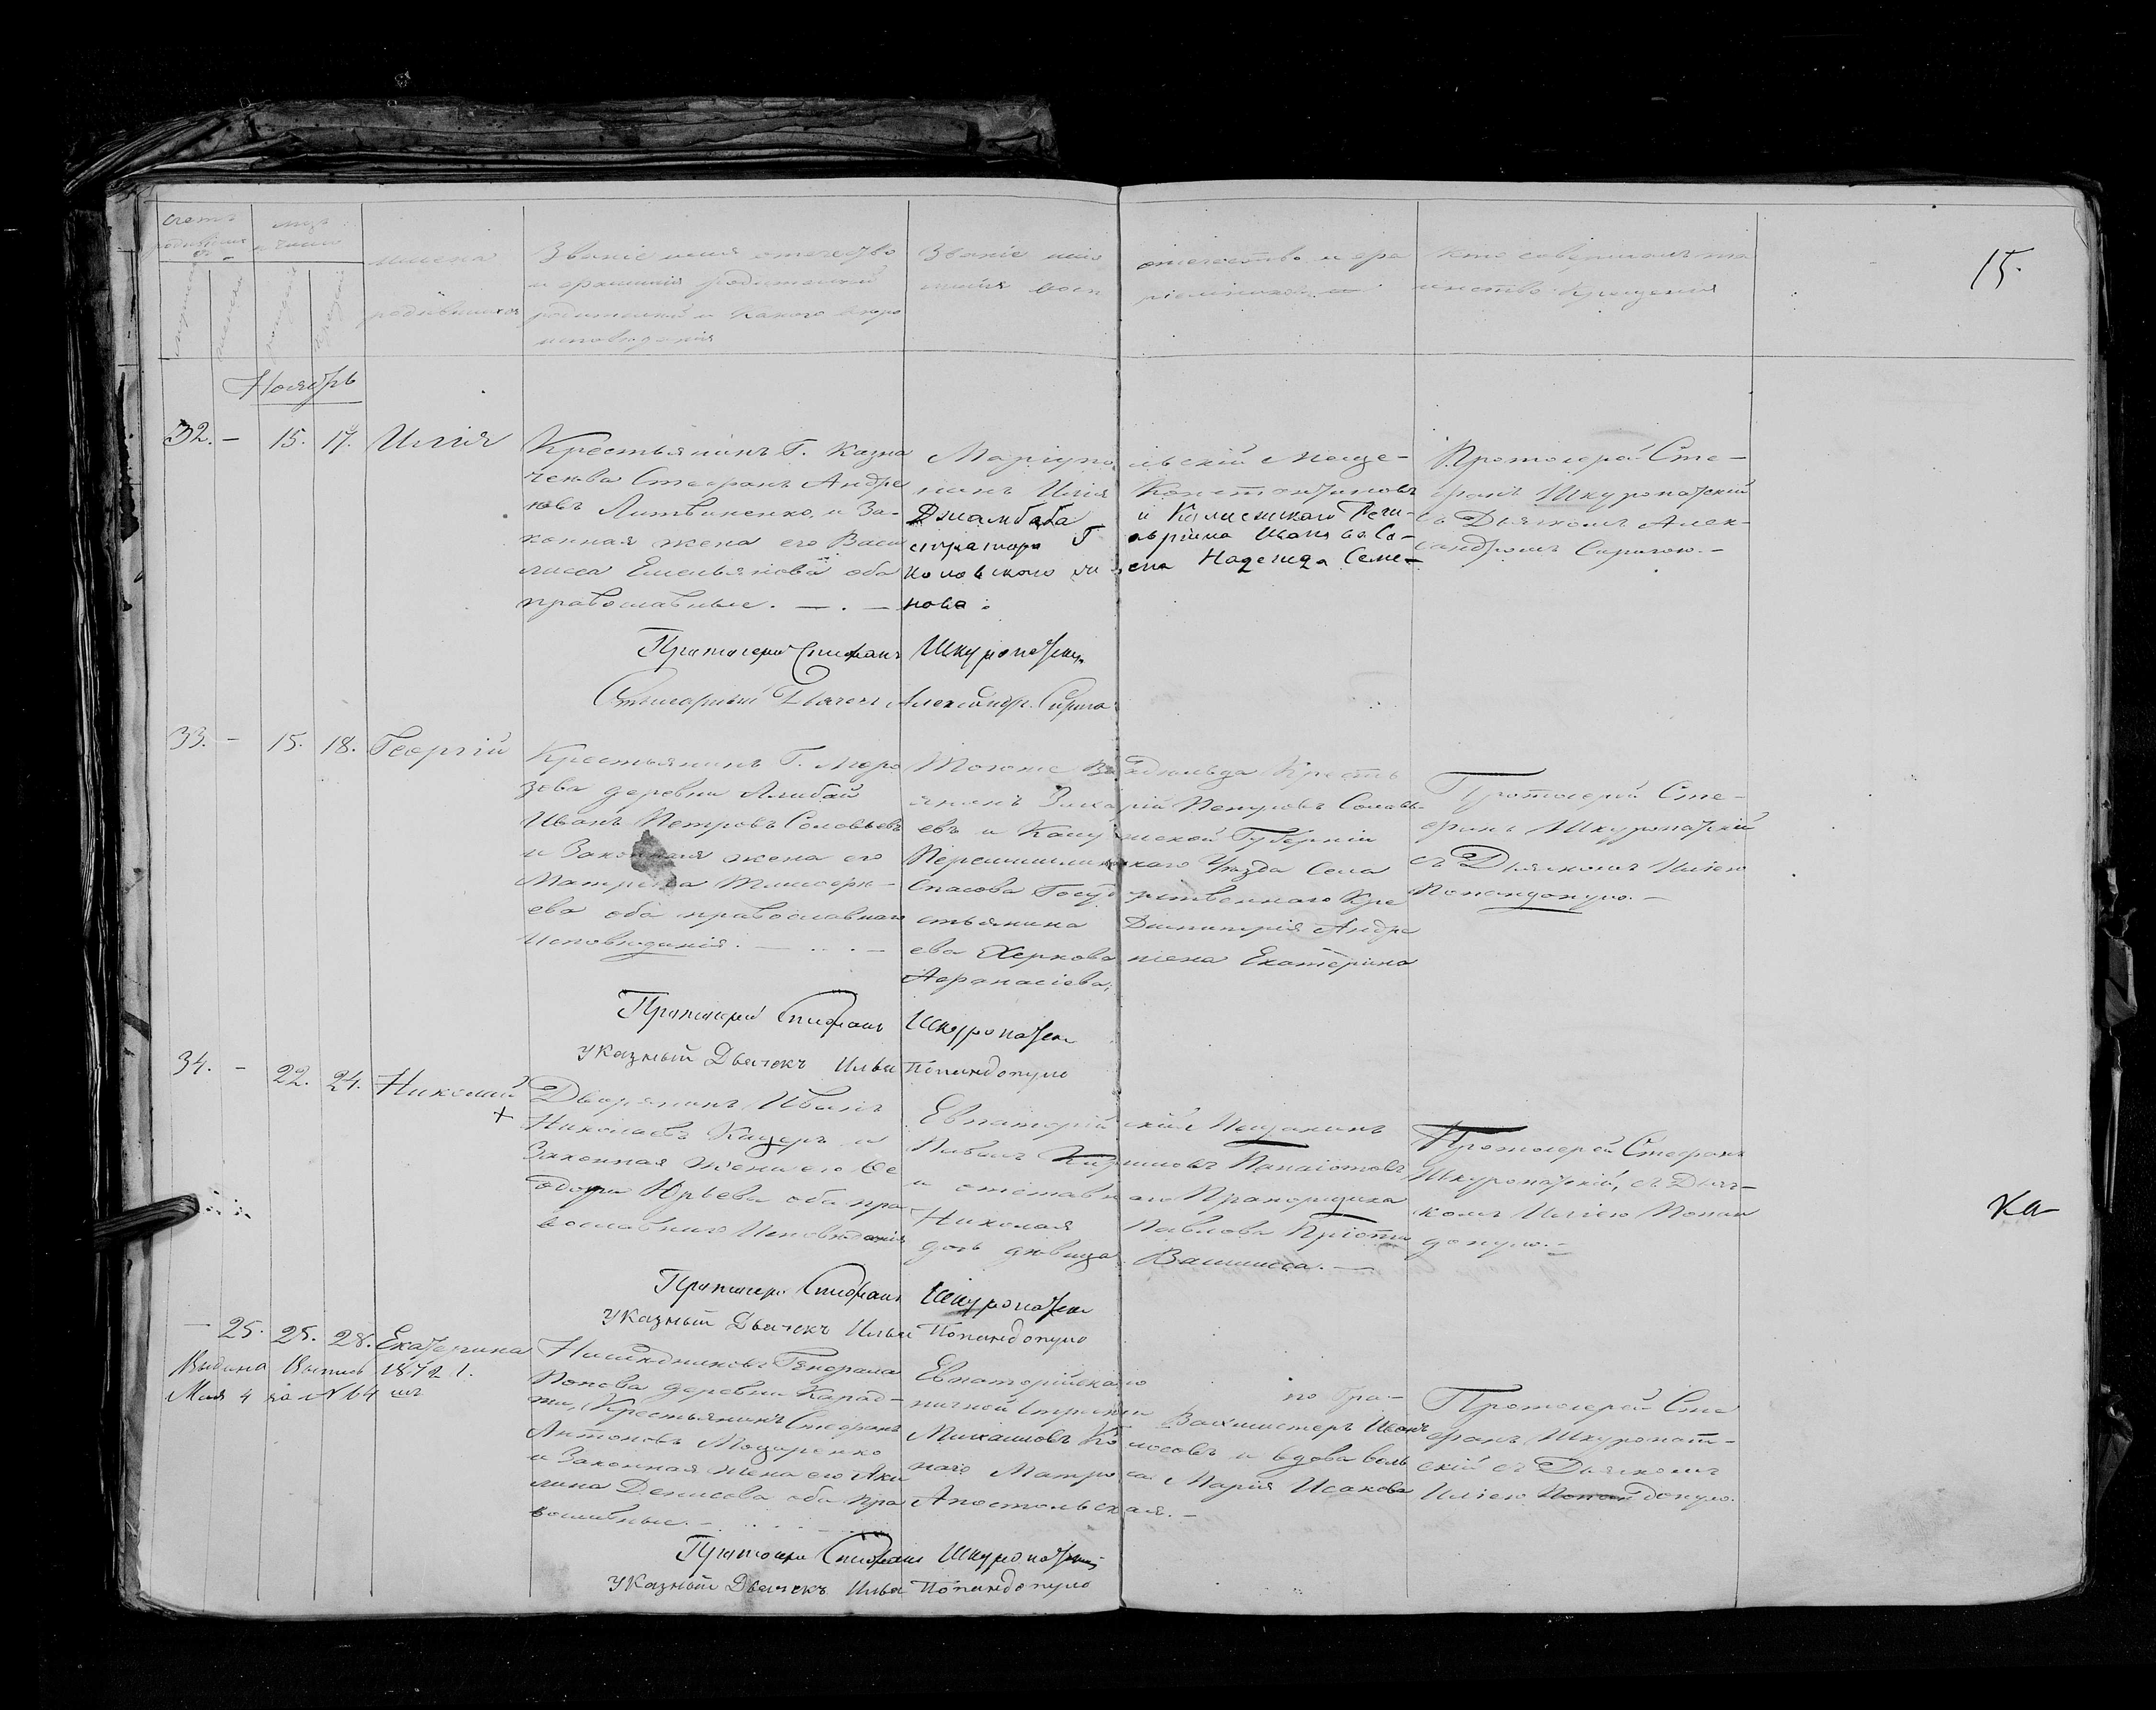 15.
счетъ родившихся
мужеска
женска
мѣс. и число
рожденія
крещенія
имена родившихся
Званіе имя отечество
и фамилія родителей
и какого вѣро
исповѣданія
Званіе имя отечество и фа
милія воспріемниковъ
кто совершалъ та
инство крещенія
Ноябрь
32. — 15. 17. Илія
Крестьянинъ Г. Казна
чеева Стефанъ Андре
евъ Литвиненко, и За-
конная жена его Васи
лисса Емельянова оба
православные. — . —
Маріупольскій Меща-
нинъ Илія Константиновъ
Джамбаба и Колежскаго Реги-
стратора Г
Иванова Со-
коловскаго жена Надежда Семе-
нова.
Протоіерей Сте-
фанъ Шкуропатскій
съ Дьячкомъ Алек-
сандромъ Сиричою. —
Протоіерей Стефанъ Шкуропатскій
Дьячекъ Александръ Сирича
33. — 15. 18. Георгій
Крестьянинъ Г. Моро
зова деревни Алибай
Иванъ Петровъ Соловьевъ
и Законная жена его
Матрена Тимофе-
ева оба православнаго
Исповѣданія. —
Тогоже Владѣльца Кресть
янинъ Захарій Петровъ Соловь
евъ и Калужской Губерніи
Перемышльскаго Уѣзда Села
Спасова Государственнаго Кре
стьянина Димитрія Андре
ева жена Екатерина
Афанасіева.
Протоіерей Сте-
фанъ Шкуропатскій
съ Дьячкомъ Иліею
Попандопуло. —
Протоіерей Стефанъ Шкуропатскій
Указный Дьячекъ Илья Попандопуло
34. — 22. 24. Николай
+
Дворянинъ Иванъ
Николаевъ Кацеръ и
Законная жена его Ѳе
одора Юрьева оба пра
вославнаго Исповѣданія
Евпаторійскій Мещанинъ
Павелъ Кирилловъ Панаіотовъ
и отставнаго Прапорщика
Николая Павлова Христи
дочь дѣвица Василисса. —
Протоіерей Стефанъ
Шкуропатскій, съ Дьяч-
комъ Иліею Попан
допуло. —
ка
Протоіерей Стефанъ Шкуропатскій
Указный Дьячекъ Илья Попандопуло
— 25. 25. 28. Екатерина
Выдана Выпись 1872 г.
Мая 4 за № 64 мъ
Наслѣдниковъ Генерала
Попова деревни Карад-
жи, Крестьянинъ Стефанъ
Антоновъ Мацаренко
и Законная жена его Аки
лина Денисова оба пра
вославные. —
Евпаторійской по Гра-
ничной Стражи Вахмистеръ Иванъ
Михаиловъ Колосовъ и вдова воль
наго Матроса Марія Исакова
Апостольская. —
Протоіерей Сте
фанъ Шкуропат-
скій съ Дьячкомъ
Иліею Попандопуло.
Протоіерей Стефанъ Шкуропатскій
Указный Дьячекъ Илья Попандопуло